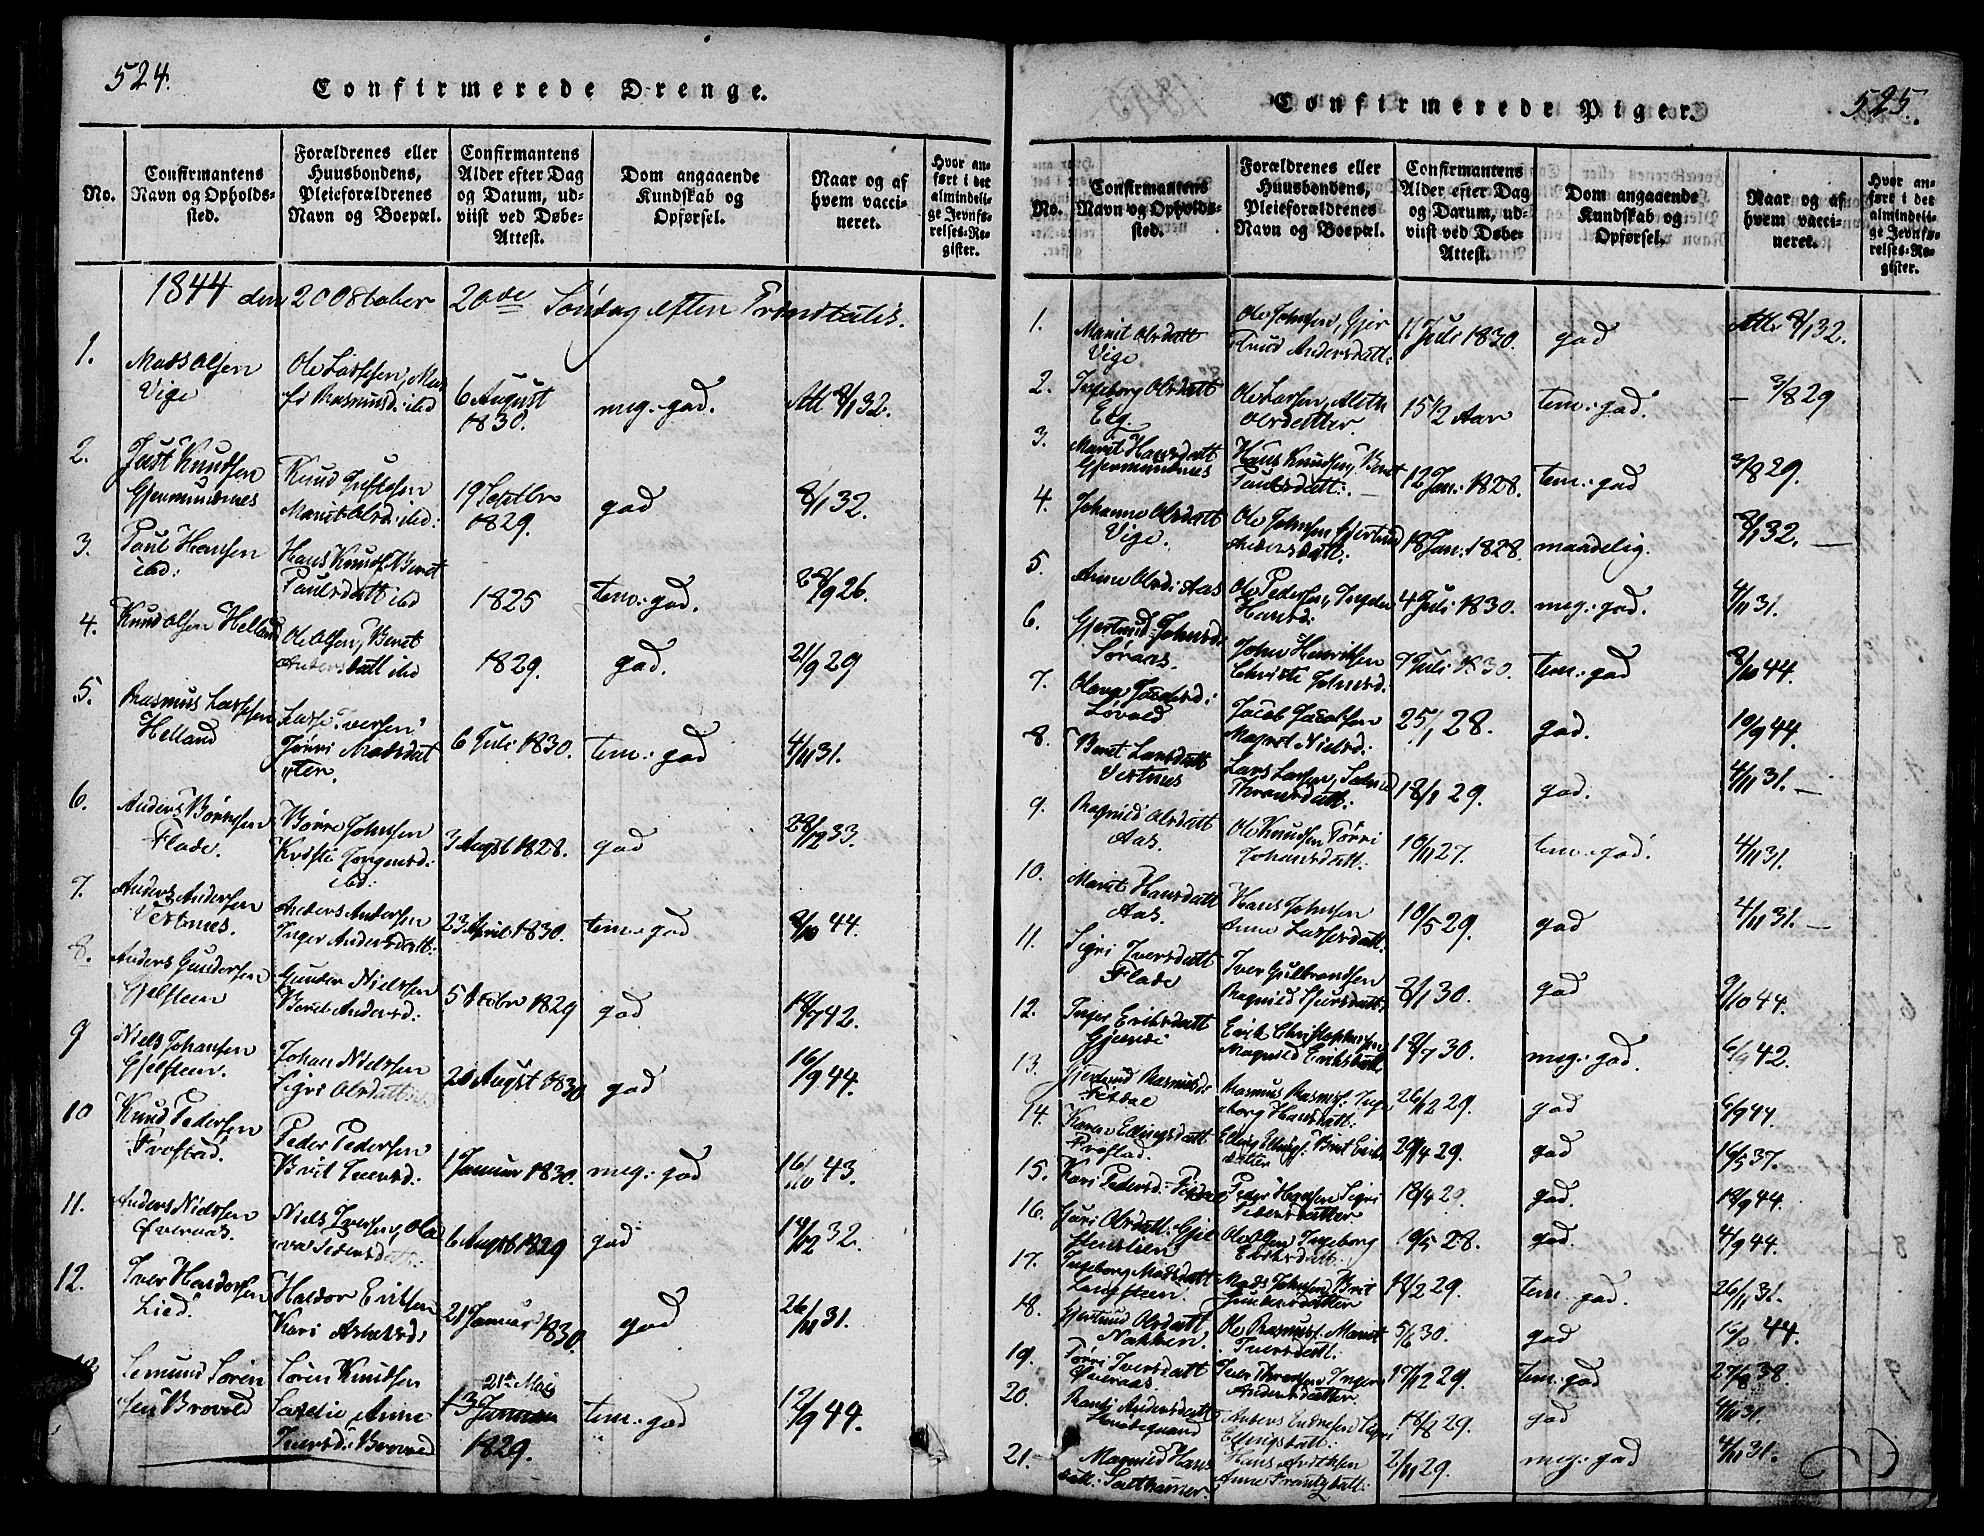 524.
Confirmerede Drenge.
No.
Confirmantens Navn og Opholdssted.
Forældrenes eller Huusbondens, Pleieforældrenes Navn og Boepæl.
Confirmantens Alder efter Dag og Datum, udviist ved Døbe-Attest.
Dom angaaende Kundskab og Opførsel.
Naar og af hvem vaccineret.
Hvor anført i det almindelige Jevnførelses-Register.
1844 den 20 October 20de Søndag efter Trinitatis.
1. Mads Olsen Vige Ole Lassesen, ibid 6 August 1830. meg: god. Att 8/1 32.
2. Just Knudsen Gjermundnes Knud Justesen Marit Olsd: ibid: 19 Septbr 1829. god 8/1 32.
3. Paul Hansen ibd: Hans Knuds. Beret Paulsdatt ibd 1825 tem: god. 28/9 26.
4. Knud Olsen Helland Ole Olsen, Beret Andersdatt ibd 1829. god. 21/9 29
5. Rasmus Lassesen Helland Lasse Iversen Madsdatter. 6 Juli 1830. tem: god 4/11 31.
6. Anders Børresen Flade. Børre Johnsen Jørgensd: ibd: 3 Augst 1828. god 28/12 33.
7. Anders Andersen Vestnes. Anders Andersen Inger Andersdatt: 23 April 1830. tem: god 8/10 44.
8. Anders Gundersen Gjelsteen Gunder Nielsen Beret Andersd: 5 Octobr 1829 god. 18/7 42.
9 Niels Johansen Gjelsteen. Johan Nielsen Sigri Olsdatt 20 Augst 1830 god 16/9 44.
10 Knud Pedersen Frostad. Peder Pedersen Brit Iversd: 1 Januar 1830. meg: god 16/10 43.
11. Anders Nielssen Øveraas. Niels Iversen, Pedersdatt: 6 Augst 1829 god 14/12 32.
12. Iver Haldorsen Lied. Haldor Eriksen Kari 21 Januar 1830. god 26/11 31.
Søren Brovold Søren Knudsen Anne Iversd: Brovold 21de Mai 13 Januar 1829. tem: god 12/9 44.
525.
Confirmerede Piger.
No.
Confirmantens Navn og Opholdssted.
Forældrenes eller Huusbondens, Pleieforældrenes Navn og Boepæl.
Confirmantens Alder efter Dag og Datum, udviist ved Døbe-Attest.
Dom angaaende Kundskab og Opførsel.
Naar og af hvem vaccineret.
Hvor anført i det almindelige Jevnførelses-Register.
1. Marit Olsdatt Vige Ole Johnsen, Gjertrud Andersdatt: 11 Juli 1830. god Att: 8/1 32.
2. Ingeborg Olsdatt Ole Lassen, Olsdatter. 15 1/2 Aar tem: god. — 3/8 29
3. Marit Hansdatt Gjermundnes Hans Knudsen, Beret Paulsdatt: 12 Jan: 1828. tem: god 3/8 29.
4. Johanne Olsdatt Vige. Ole Johnsen Gjertrud Andersdatt: 18 Jan: 1828. maadelig. 8/1 32.
5. Anne Olsd: Aas Ole Pedersen, Hansd: 4 Juli 1830. meg: god. 4/11 31.
6. Gjertrud Johnsd: Søraas. John Henriksen Christi Johnsd. 9 Juli 1830. tem: god 8/10 44.
7. Jacobsd: Løvold Jacob Jacobsen Nielsd: 25/1 28. god. 19/9 44.
8. Beret Larsdatt Vestnes Lars Larsen, 18/1 29. god. 4/11 31.
9. Ragnild Olsdatt Aas. Ole Knudsen Johansdatt: 10/11 27. tem: god. 4/11 31.
10. Marit Hansdatt Aas. Hans Johnsen Anne Lassesdatt. 10/5 29. god 4/11 31.
11. Sigri Iversdatt Flade Iver Gulbrandsen Ragnild 8/1 30. god 9/10 44.
12. Inger Eriksdatt Erik Christophersen Magnild Eriksdatt 18/7 30. meg: god. 6/9 42.
13. Gjertrud Rasmusd: Rasmus Rasms: Ingeborg Hansdatt: 26/12 29. god 6/9 44.
14. Karen Ellingsdatt Frostad. Elling Ellings: Brit Eriksdatter 29/4 29. god 16/5 37.
15. Kari Pedersd: Peder Hansen Sigri Pedersdatter 18/4 29. god. 18/9 44.
16. Guri Olsdatt: Ole Olsen Ingeborg Eriksdatt: 19/5 28. god. 4/9 44.
17. Ingeborg Madsdatt Langsteen. Mads Johnsen, Brit Gundersdatter 18/2 29. tem: god. 26/11 31.
18. Gjertrud Olsdatt Nakken. Ole Rasmus. Marit Iversdatt. 5/6 30. god 44.
19. Iversdatt Øveraas Iver Inger Andersdatter 17/12 29. tem: god 27/8 38.
20. Andersdatt Anders Ellingsdatt: 18/8 29. god 4/11 31.
21. Magnild Hansdatt: Salthamer. Hans Anne 2/11 29. meg: god 4/11 31.